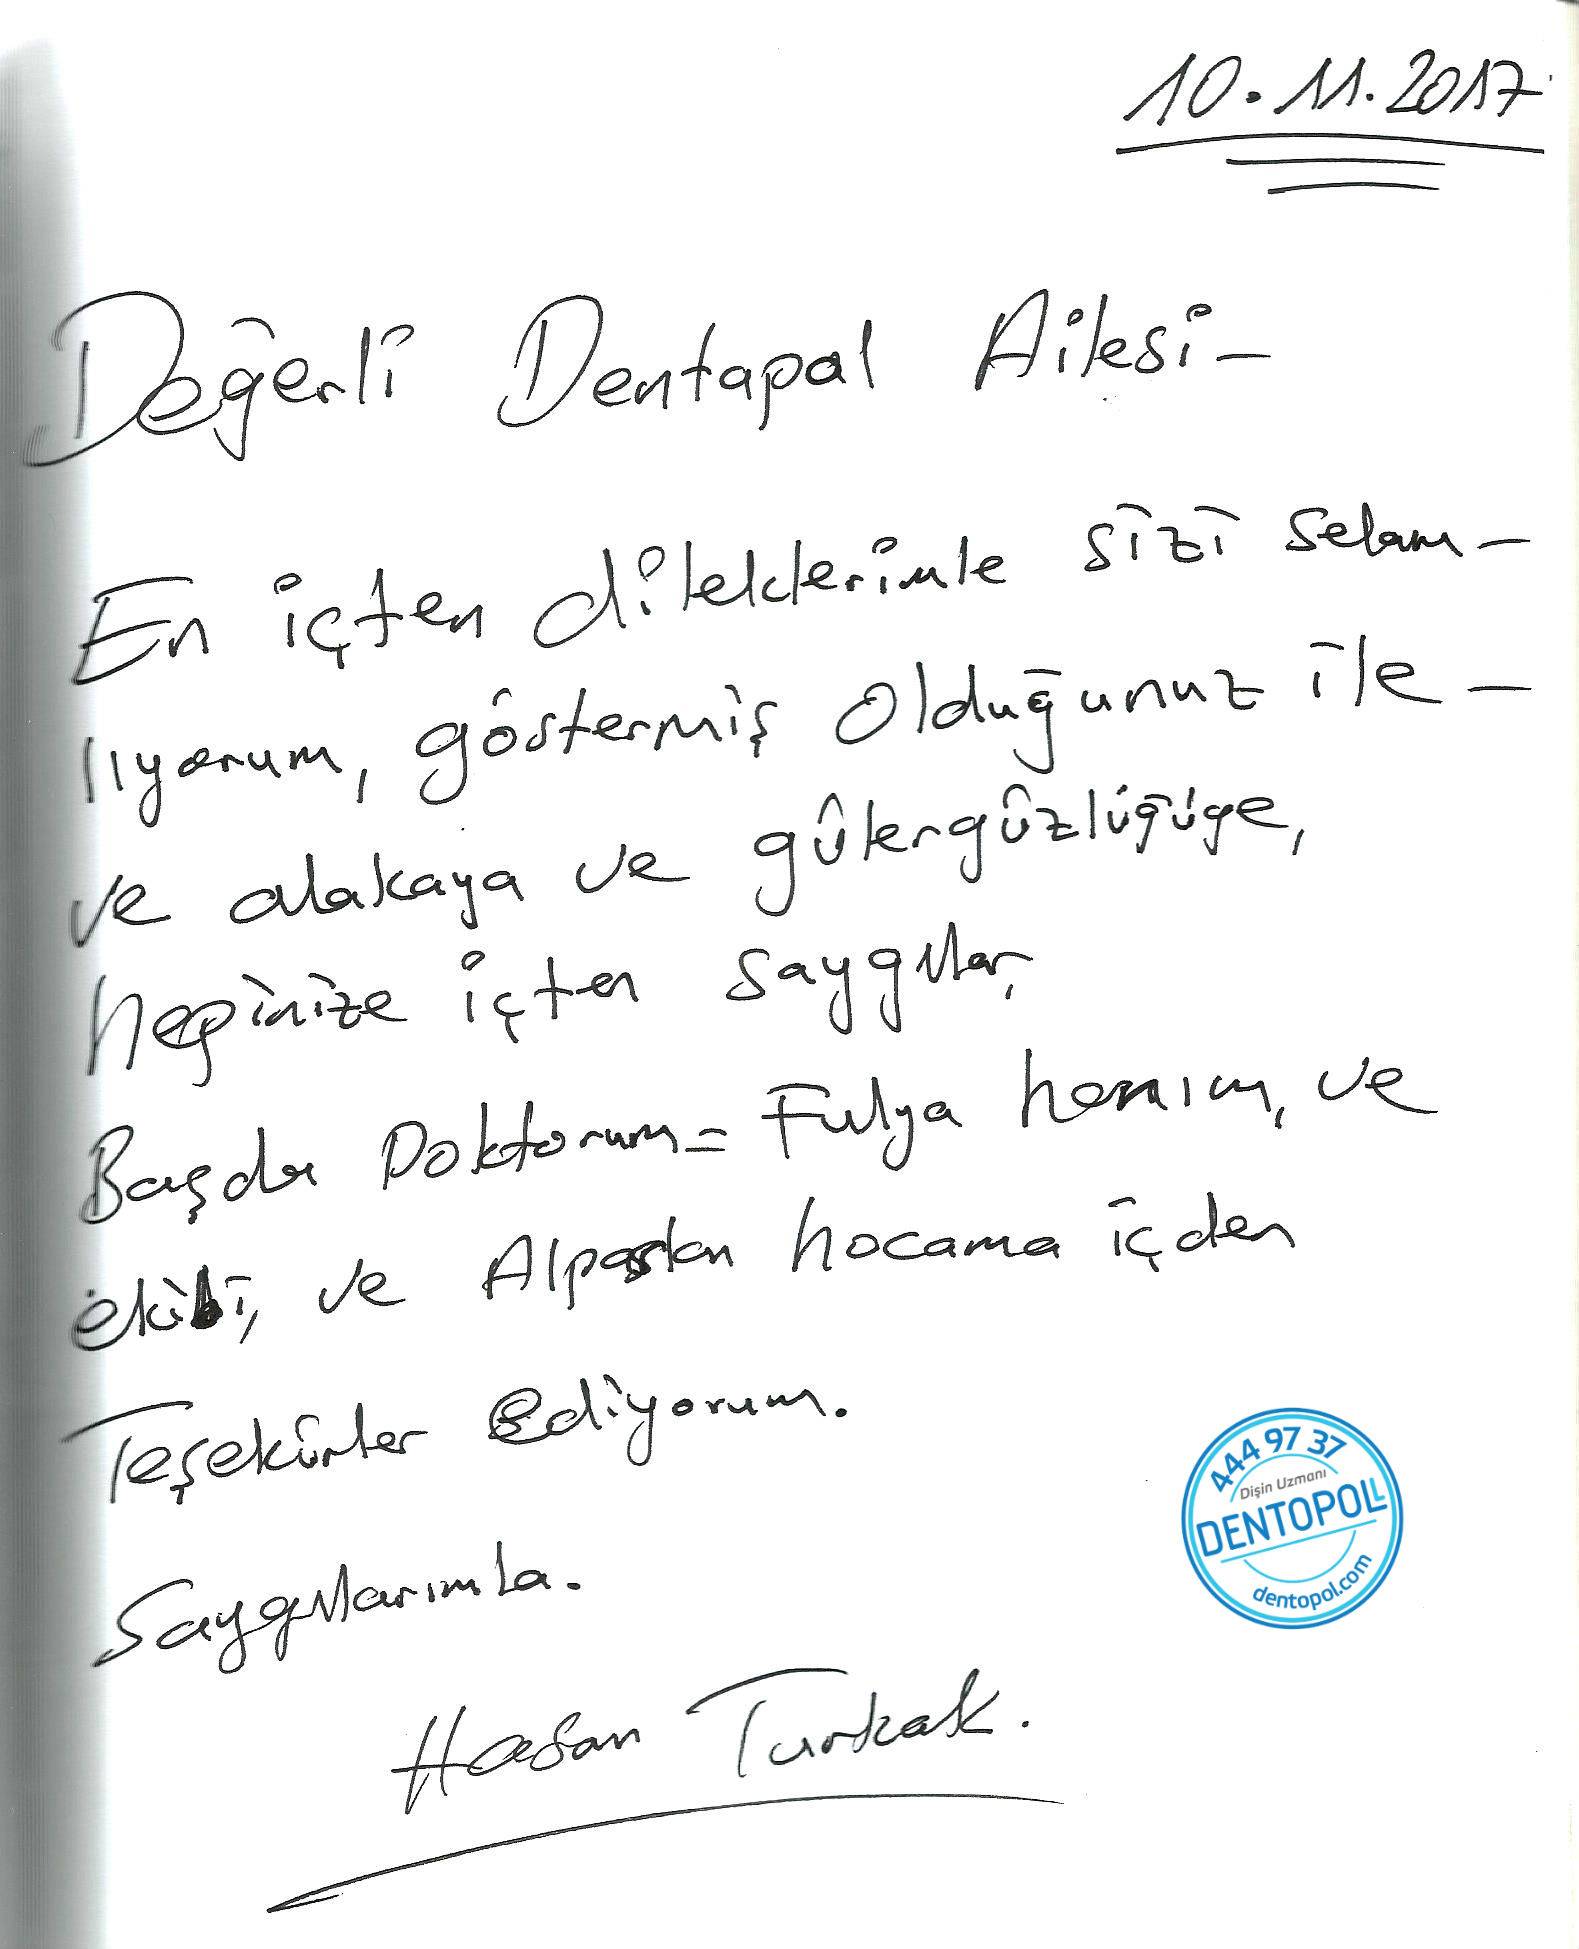 10.11.2017
Değerli Dentapal Ailesi-
En içten dileklerimle sizi selam-
lıyorum, göstermiş olduğunuz ile-
ve alakaya ve gülergüzlüğüge,
hepinize içten saygılar,
Başda Doktorum= Fulya hanım, ve
ekibi, ve Alpaslan hocama içden
Teşekürler Ediyorum.
444 97 37
Dişin Uzmanı
DENTOPOLL
dentopol.com
Saygılarımla.
Hasan Turkak.